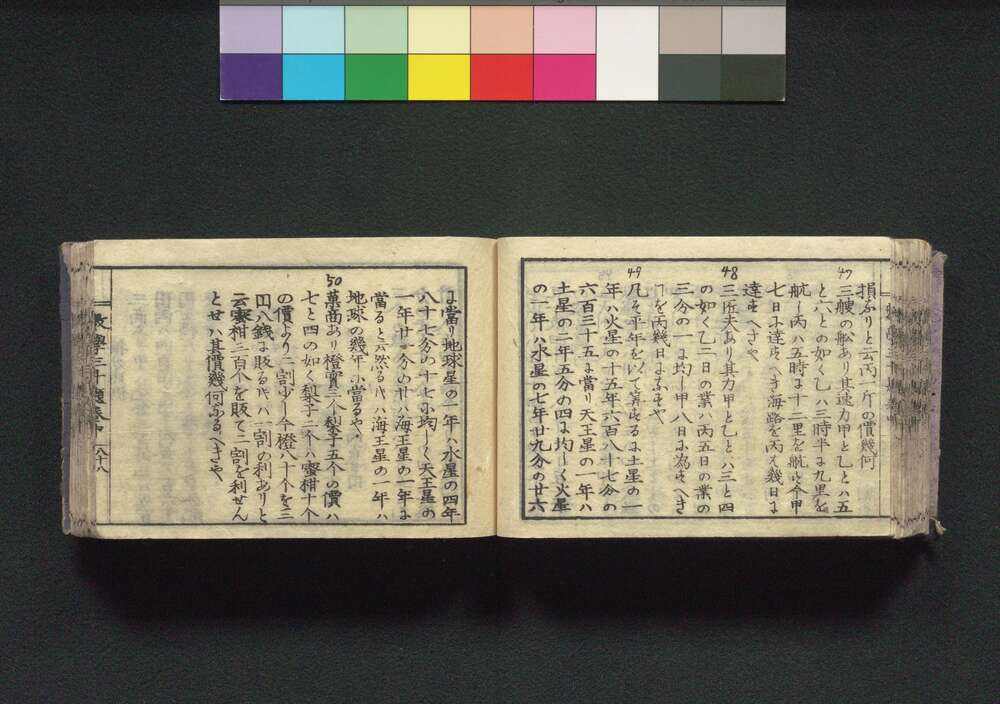 損ありと云丙一斤の價幾何
47
三艘の船あり其速力甲と乙とハ五
と六との如く乙ハ三時半に九里を
航し丙ハ五時に十二里を航す今甲
七日に達すへき海路を丙ハ幾日に
達すへきや
48
三匠夫あり其力甲と乙とハ三と四
の如く乙二日の業ハ丙五日の業の
三分の一に均し甲八日に為すへき
を丙幾日に為すや
49
凡そ平年を以て算するに土星の一
年ハ火星の十五年六百八十七分の
六百三十五に當り天王星の一年ハ
土星の二年五分の四に均しく火星
の一年ハ水星の七年廿九分の廿六
に當り地球星の一年ハ水星の四年
八十七分の十七に均しく天王星の
一年廿一分の廿ハ海王星の一年に
當ると云然る代ハ海王星の一年ハ
地球の幾年に當るや
50
菓商あり橙實三个梨子五个の價ハ
七と四の如く梨子二个ハ蜜柑十个
の價より二割少し今橙八十个を三
円八銭に販る代ハ一割の利ありと
云蜜柑二百个を販て二割を利せん
とせハ其價幾何なるへきや
數學三千題卷中
八十八